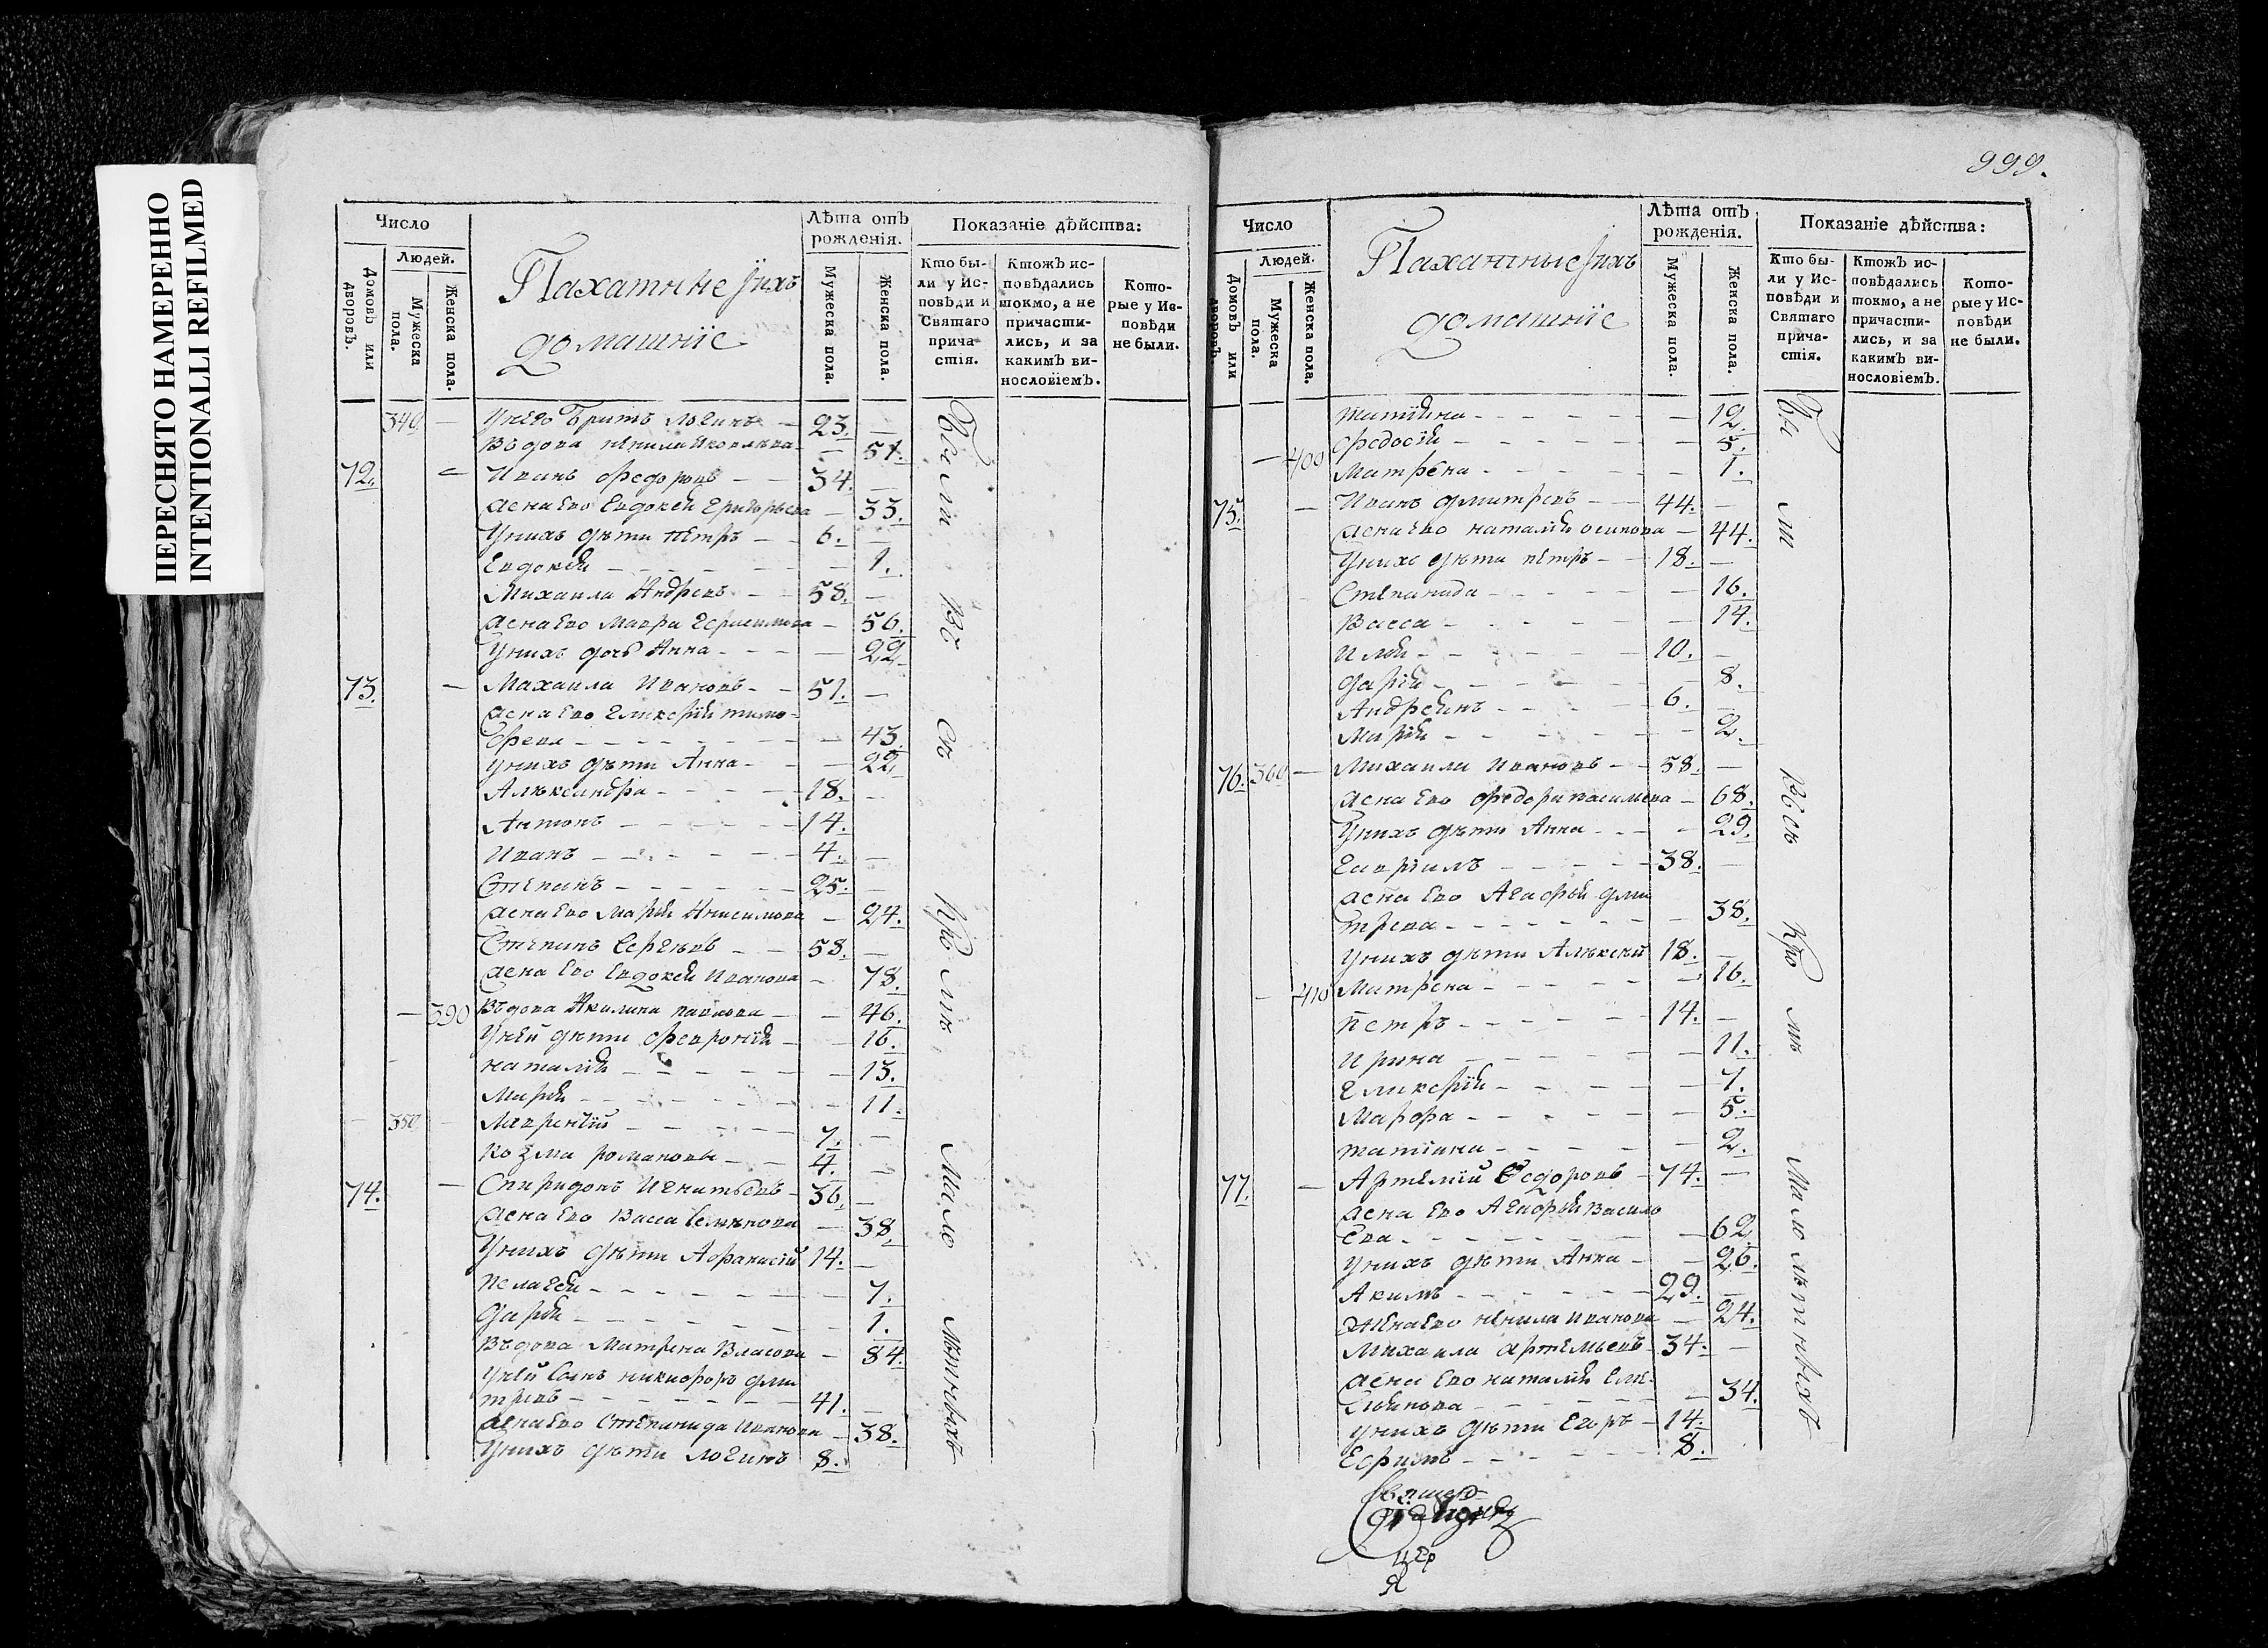 ПЕРЕСНЯТО НАМЕРЕННО
INTENTIONALLI REFILMED
Число
Людей.
Домовъ или дворовъ.
Мужеска пола.
Женска пола.
Пахатные ихъ
домашнїе
Лѣта отъ рожденія.
Мужеска пола.
Женска пола.
Показаніе дѣйства:
Кто бы-
ли у Ис-
повѣди и
Святаго
прича-
стія.
Ктожъ ис-
повѣдались
токмо, а не
причасти-
лись, и за
какимъ ви-
нословіемъ.
Кото-
рые у Ис-
повѣди
не были.
340 — Унего братъ Логинъ — 23. —
Въдова Ненила Яковлева — 51.
72. — Иванъ Федоровъ — — 34. —
Жена Ево Евдокея Григорьева — 33.
Унихъ дѣти Петръ — — 6. —
Евдокея — — 1.
Михаила Андревъ — — 58. —
Жена Ево Мавра — 56.
Унихъ дочь Анна — — 22
73. — Михаила Ивановъ — — 51. —
Жена Ево Гликерїя Тимо-
феева — — 43.
Унихъ дѣти Анна — — 22
Алѣксандра — — 18. —
Антонъ — — 14.
Иванъ — — 4. —
Степанъ — — 25. —
Жена Ево Марїя Анисимова — 24.
Степанъ Сергѣевъ — — 58. —
Жена Ево Евдокея Иванова — 78.
— 390 Въдова Акилина Павлова — — 46.
Уней дѣти Феврония — — 16.
Наталия — — 13.
Мария — — 11.
350 Лаврентий — — 7. —
Козма Романовы — — 4. —
74. — Спиридонъ Игнатьевъ — 36. —
Жена Ево Васса Семенова — 38.
Унихъ дѣти Афанасий 14. —
Пелагея — — 7.
Дарья — — 1.
Въдова Матрена Власова — 84.
Уней Сынъ Никифоръ Дми
тревъ — — 41. —
Жена Ево Степанида Иванова — 38.
Унихъ дѣти Логинъ 8.
Были въ Св
Кро мѣ
Мало лѣтныхъ
999.
Число
Людей.
Домовъ или дворовъ.
Мужеска пола.
Женска пола.
Пахатные ихъ
домашнїе
Лѣта отъ рожденія.
Мужеска пола.
Женска пола.
Показаніе дѣйства:
Кто бы-
ли у Ис-
повѣди и
Святаго
прича-
стія.
Ктожъ ис-
повѣдались
токмо, а не
причасти-
лись, и за
какимъ ви-
нословіемъ.
Кото-
рые у Ис-
повѣди
не были.
Татїяна — — 12.
Федосїя — — 5.
— 400 Матрена — — 1.
75. — Иванъ Дмитревъ — — 44. —
Жена Ево Наталия Осипова — 44.
Унихъ дѣти Петръ — — 18. —
Степанида — — 16.
Васса — — 14.
Илья — — 10. —
Дарїя — — 8.
Андреянъ — — 6. —
Марїя — — 2.
76. 360 — Михаила Ивановъ — — 58. —
Жена Ево Федора Васильева — 68.
Унихъ дѣти Анна — — 29.
Гаврїилъ — — 38. —
Жена Ево Агафья Дми
трева — — 38.
Унихъ дѣти Алѣксей 18. —
— 410 Матрена — — 16.
Петръ — — 14. —
Ирина — — 11.
Гликерїя — — 7.
Марфа — — 5.
Татїана — — 2.
77. — Артемий Федоровъ — 74. —
Жена Ево Агафья Василь
Ева — — 62.
Унихъ дѣти Анна — — 26.
Акимъ — — 29. —
Жена Ево Ненила Иванова — 24.
Михаила Артемьевъ — 34. —
Жена Ево Наталия — 34.
Унихъ дѣти Егоръ — 14.
Ефимъ — — 8.
Бы ли
въ Св
Кро мѣ
Мало лѣтныхъ